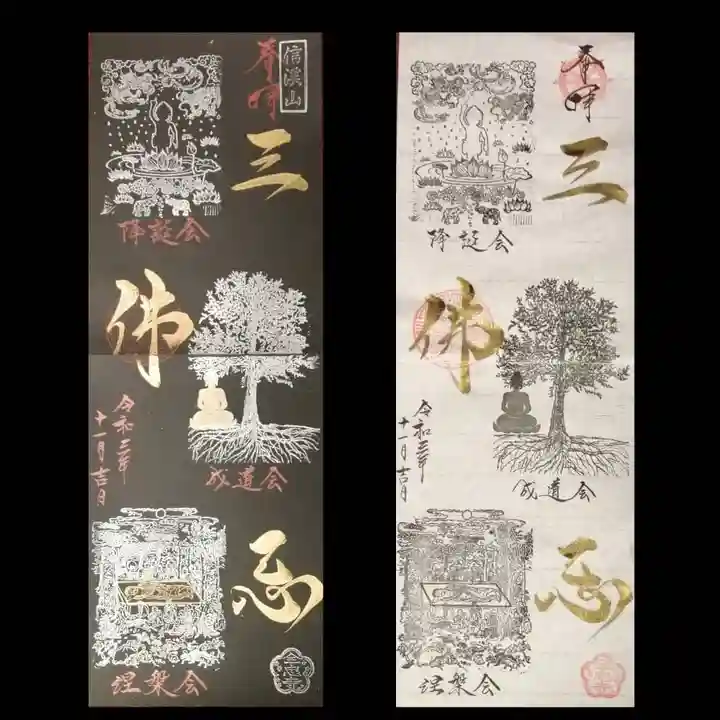 信溪山
奉拝
三
降誕会
佛
成道会
令和三年
十一月吉日
忌
涅槃会
奉拝
三
降誕会
佛
成道会
令和三年
十一月吉日
忌
涅槃会